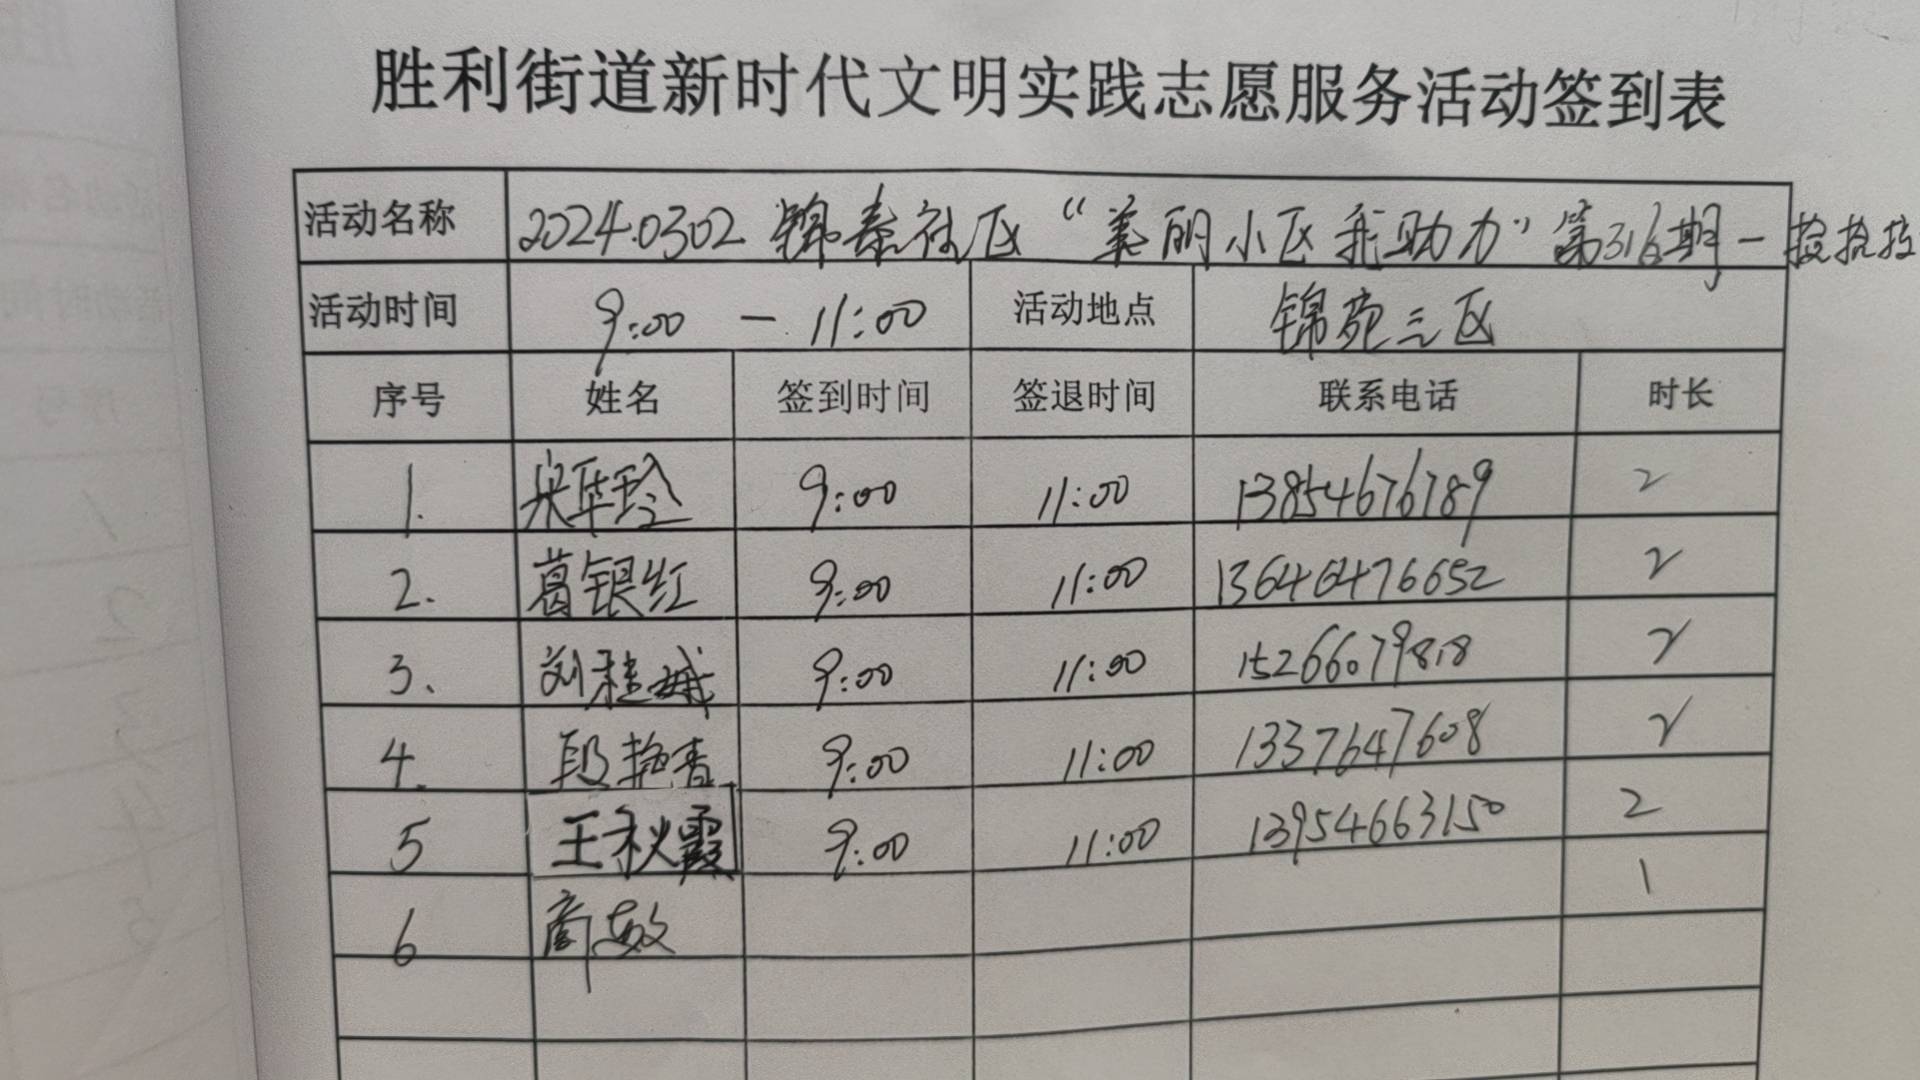 胜利街道新时代文明实践志愿服务活动签到表
活动名称 2024.0302 锦泰社区“美丽小区我助力”第316期一
活动时间 9:00 — 11:00 活动地点 锦苑三区
序号 姓名 签到时间 签退时间 联系电话 时长
1. 宋华玲 9:00 11:00 13854676789 2
2. 葛银红 9:00 11:00 13646476652 2
3. 刘桂娥 9:00 11:00 15266079818 2
4. 段艳春 9:00 11:00 13376477608 2
5 王秋霞 9:00 11:00 13954663150 2
6 商敏 1